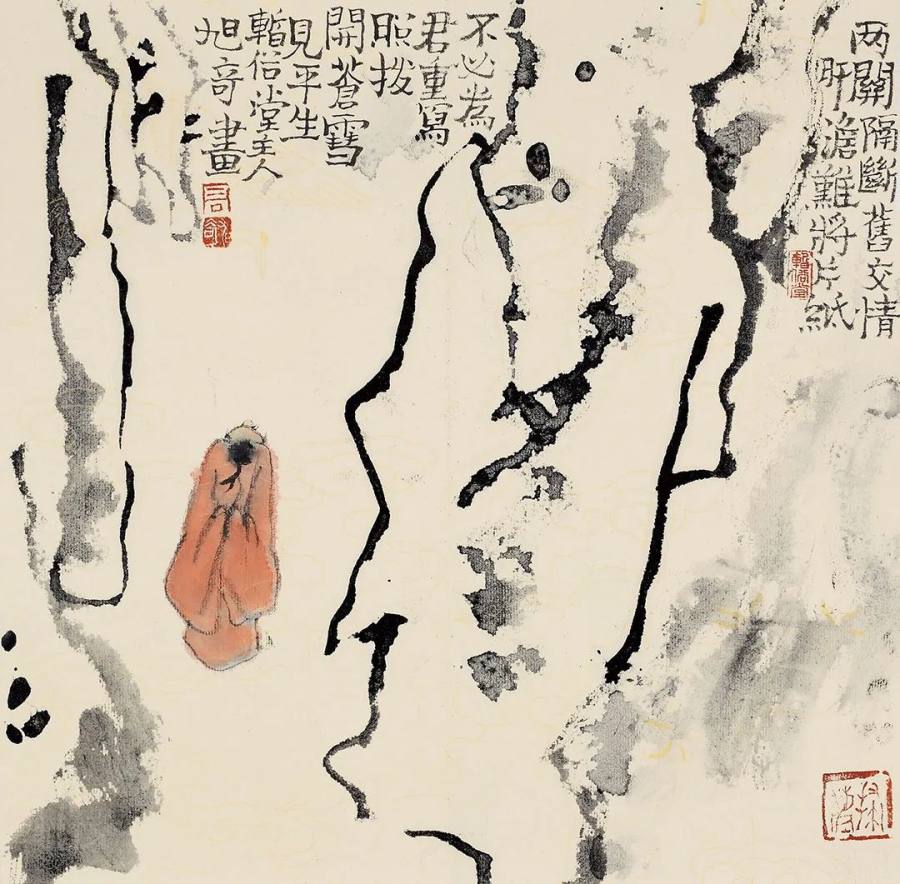 两關隔斷舊交情
肝澹難將片紙
不必為
君重寫
照拨
開蒼雪
見平生
暫借堂主人
旭奇畫